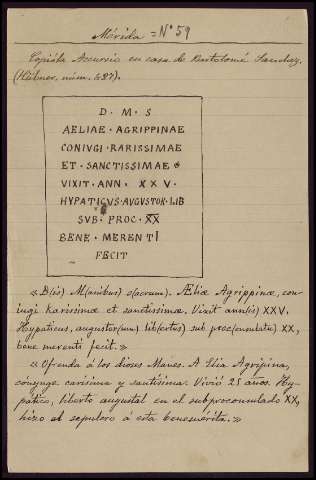 Mérida = Nº 59
Copióla Accursio en casa de Bartolomé Sanchez.
(Hübner, núm. 487).
D · M · S
AELIAE · AGRIPPINAE
CONIVGI · RARISSIMAE
ET · SANCTISSIMAE
VIXIT · ANN · XXV ·
HYPATICVS · AVGVSTOR · LIB
SVB · PROC · XX
BENE · MERENTI
FECIT
«D(is) M(anibus) s(acrum). Æliæ Agrippinæ, con-
iugi karissimæ et sanctissimæ. Vixit ann(is) XXV.
Hypaticus, augustor(um) lib(ertus) sub proc(onsulatu) XX,
bene merenti fecit.»
«Ofrenda á los dioses Manes. A Elia Agripina,
cónyuge carísima y santísima. Vivió 25 años. Hy-
pático, liberto augustal en el subproconsulado XX,
hizo el sepulcro á esta benemérita.»